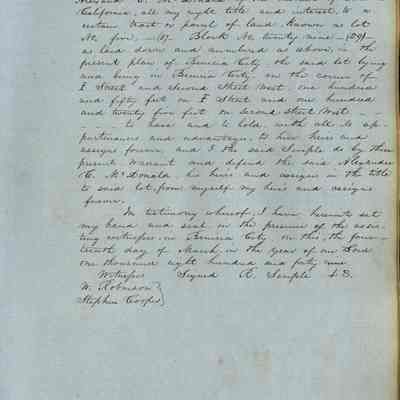 California, all my right title and interest, to a
certain tract or parcel of land known as lot
No. five, —(5)— Block No. twenty nine —(29)—
as laid down and numbered as above, in the
present plan of Benicia City, the said lot lying
and being in Benicia City, on the corner of
I Street and Second Street West, one hundred
and fifty feet on I Street and one hundred
and twenty five feet on Second Street West, — —
— — to have and to hold, with all its ap-
purtenances and advantages, to him heirs and
assigns forever, and I the said Semple do by these
present warrant and defend the said Alexander
C. McDonald his heirs and assigns in the title
to said lot, from myself my heirs and assigns
forever.
In testimony whereof, I have hereunto set
my hand and seal in the presence of the assis-
ting witnesses, in Benicia City, on this, the four-
teenth day of March, in the year of our Lord
one thousand eight hundred and forty nine
Witnesses Signed R. Semple L.S.
W. Robinson }
Stephen Cooper }